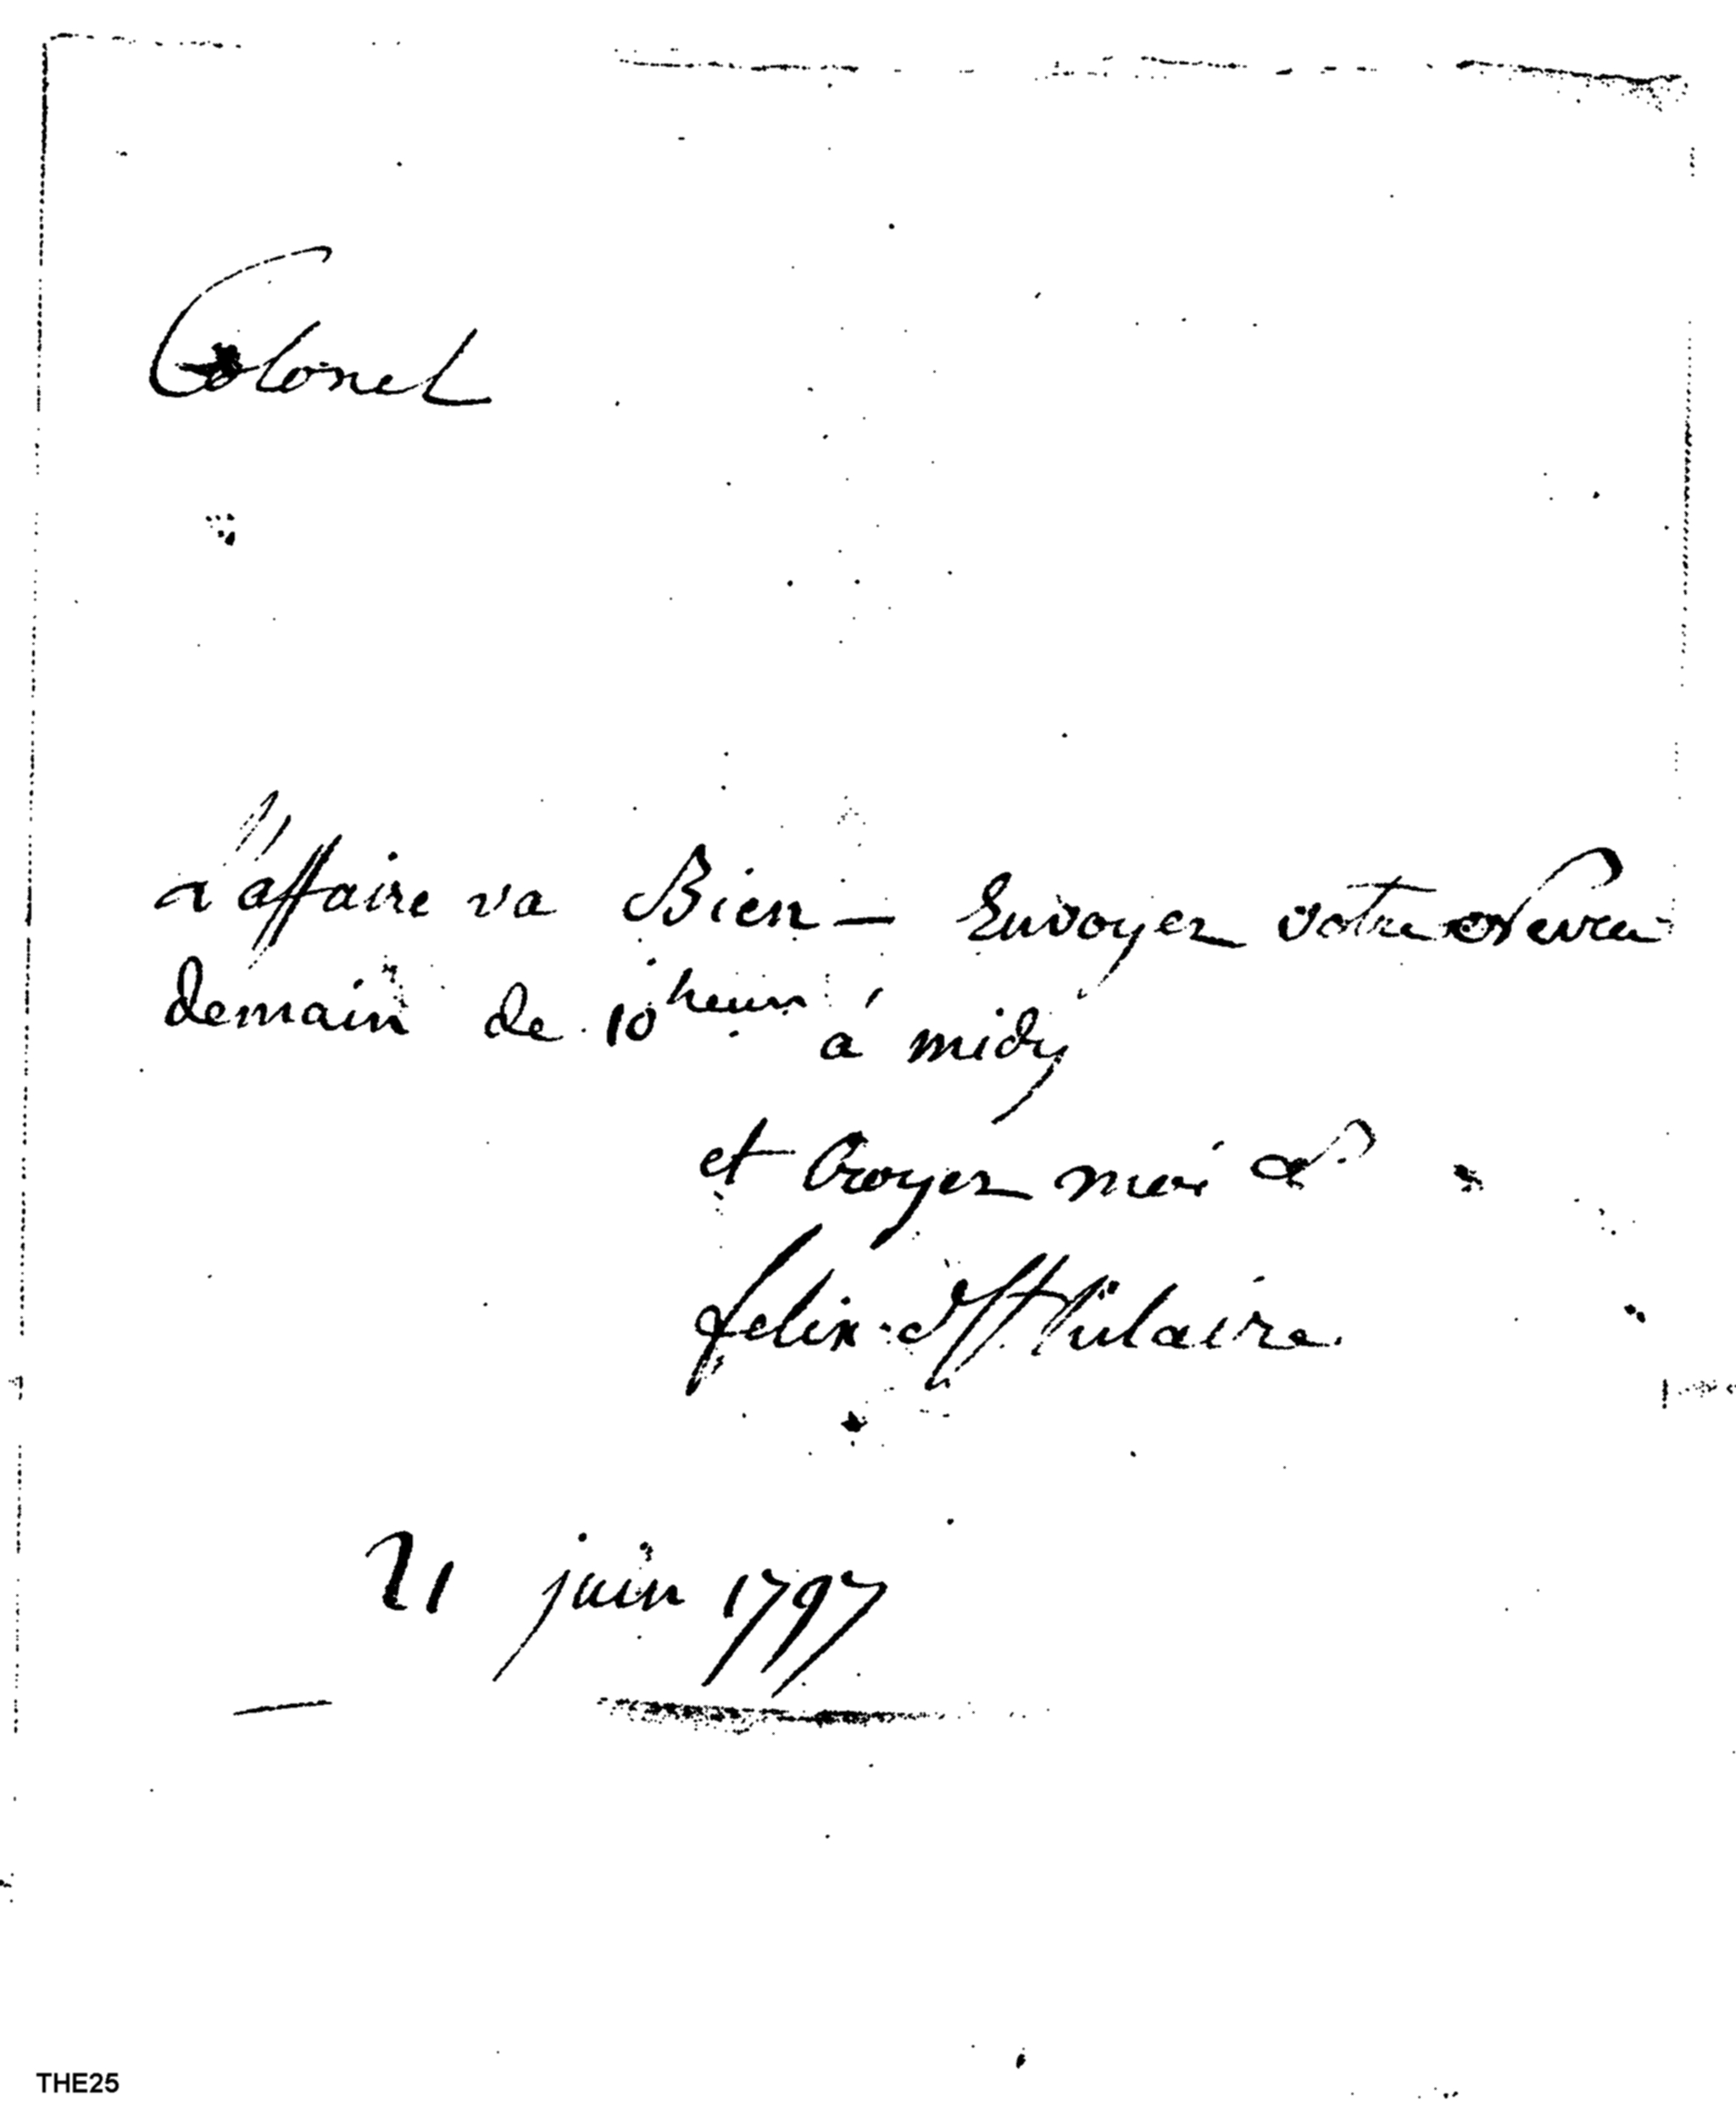 Colonel
L'affaire va Bien — Envoyez votre Neveu
demain de 10 heures à midy
et Croyez moi &
felix St hilaire
21 juin 1797
THE25